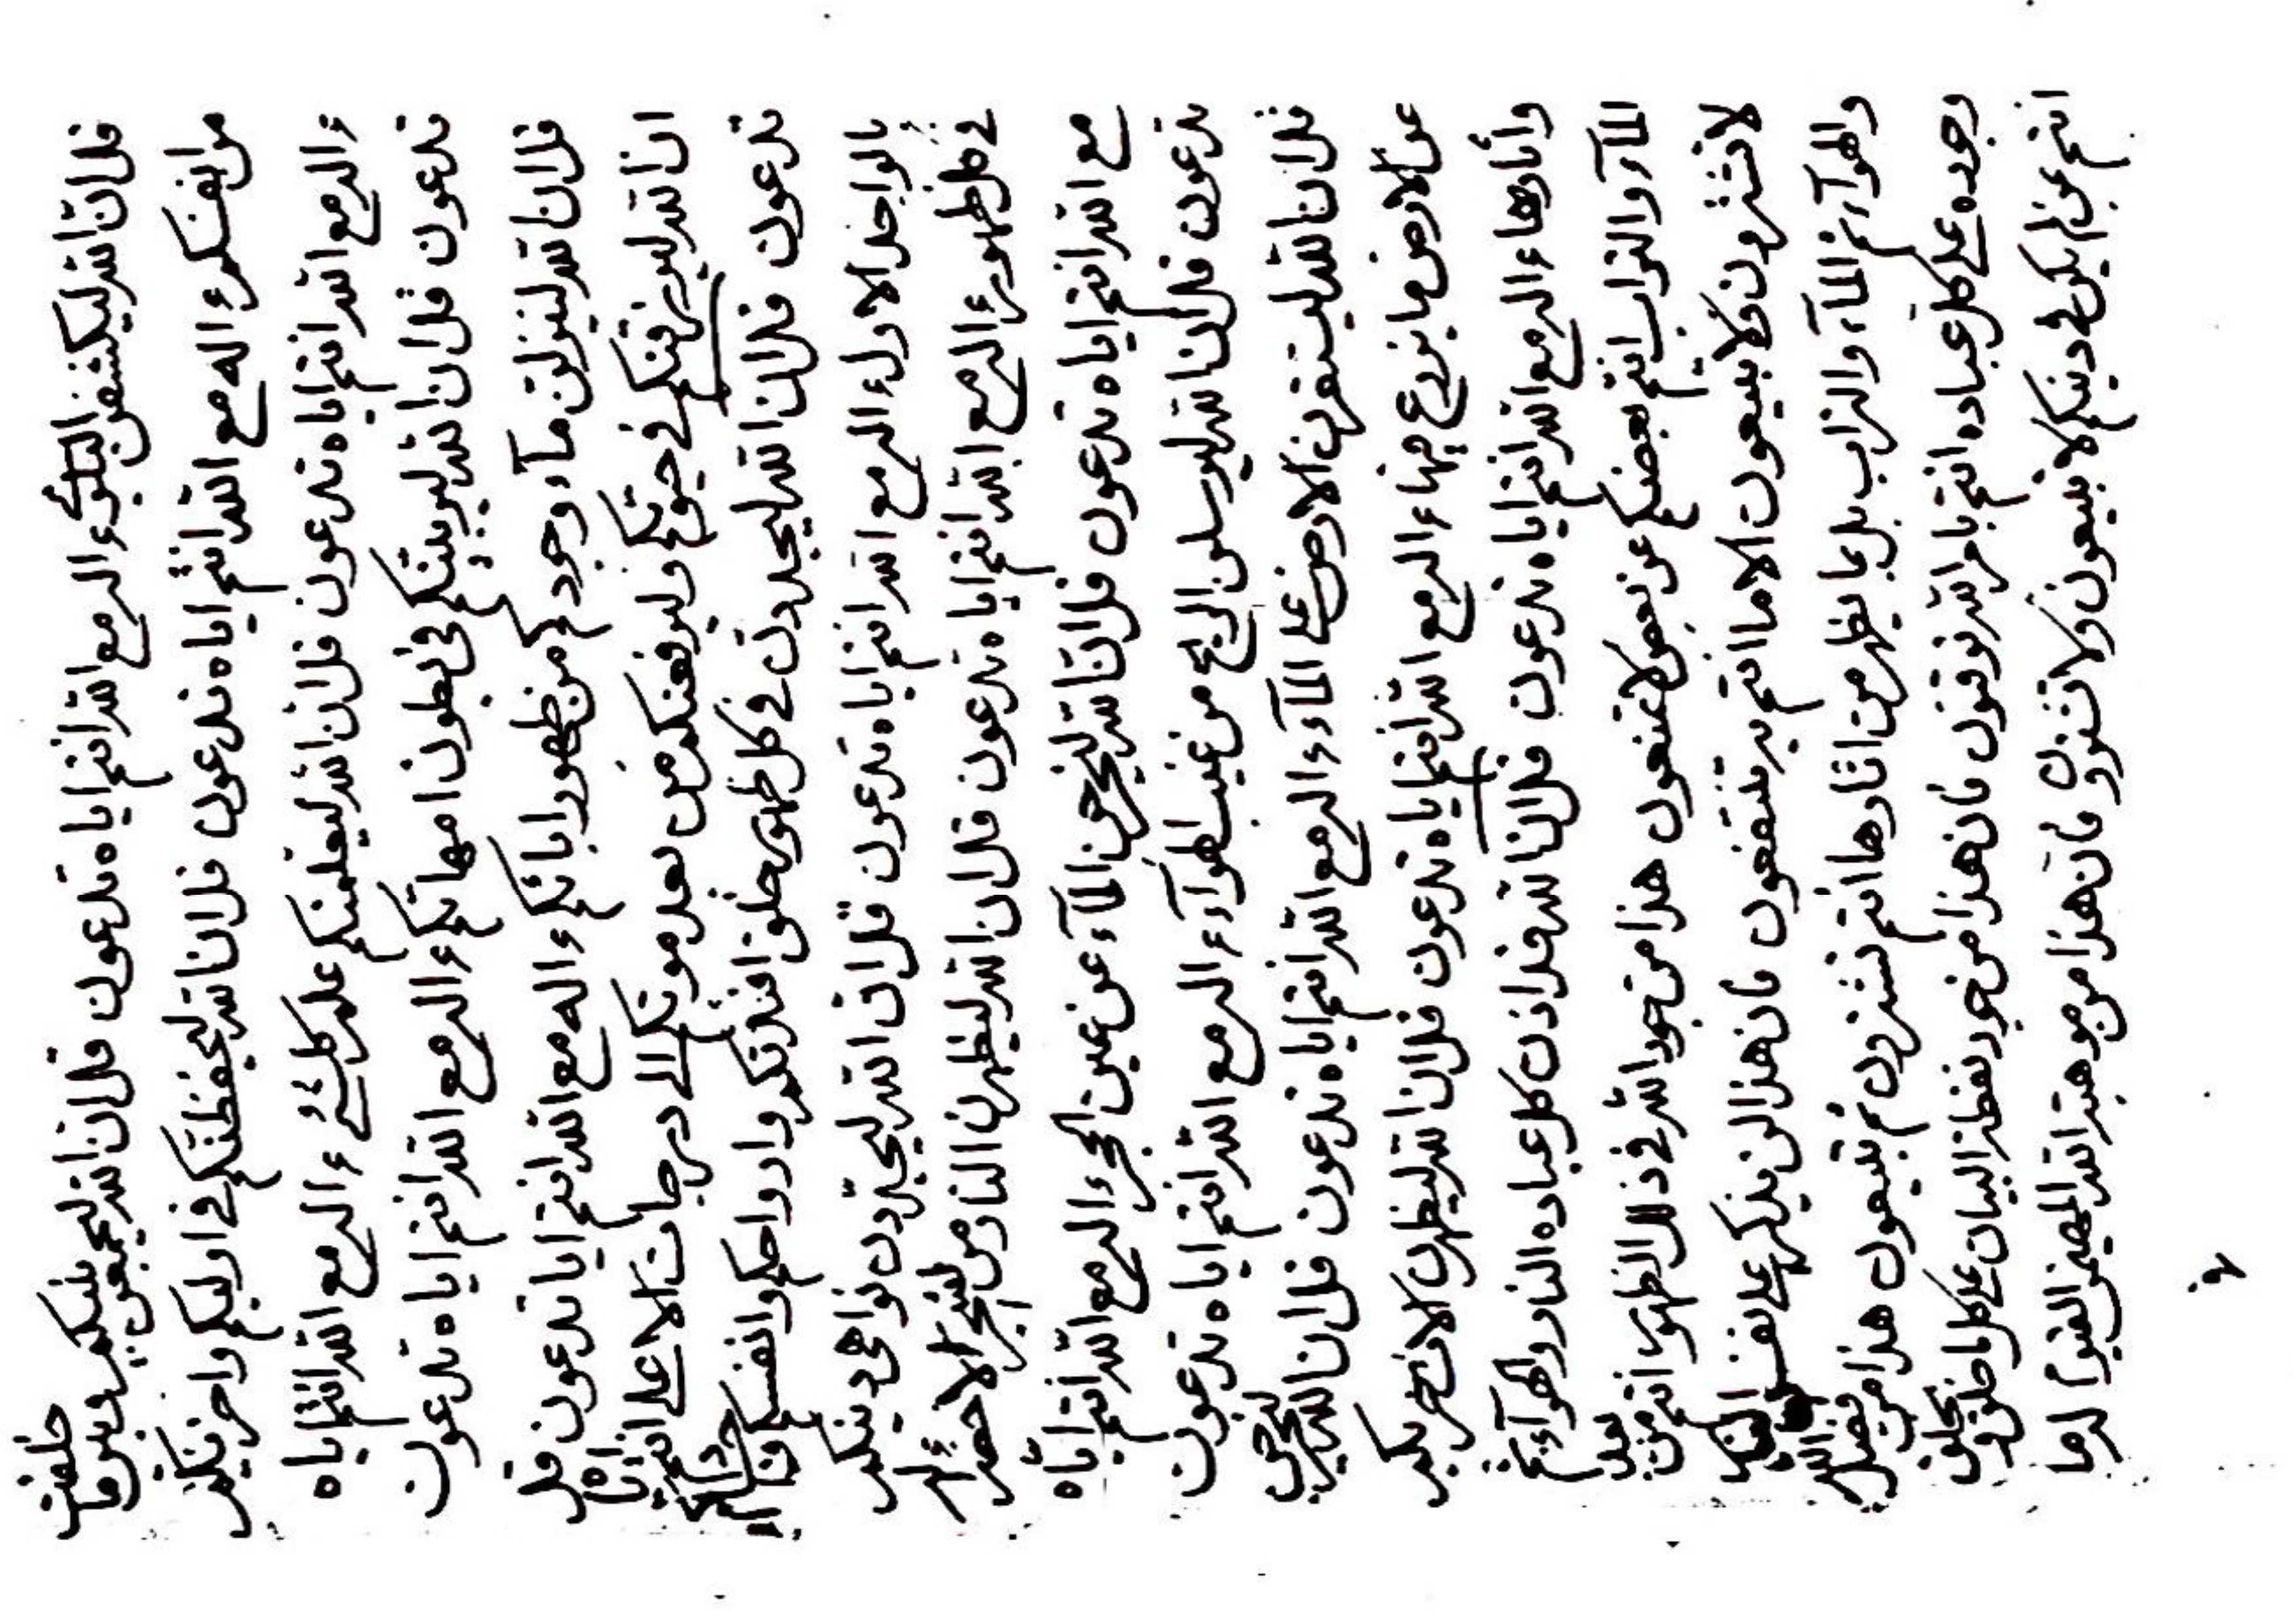 قل ان الله ليكشفن البلوى ءاله مع الله انتم اياه تدعون قل ان الله ليجمعن بينكم وبين ما خلقت
من انفسكم ءاله مع الله انتم اياه تدعون قل ان الله ليحفظنكم في اوليكم واخريكم
ءاله مع الله انتم اياه تدعون قل ان الله ليعلمنكم علم كل شيء ءاله مع الله انتم اياه
تدعون قل ان الله ليربينكم في بطون امهاتكم ءاله مع الله انتم اياه تدعون
قل ان الله لينزلن ماء وجودكم من ظهور ابائكم ءاله مع الله انتم ايا تدعون قل
ان الله ليرزقنكم في حيوتكم وليرفعنكم من بعد موتكم الى درجات الاعلى انتم اياه
تدعون قل ان الله ليجددن في كل ظهور خلق افئدتكم وارواحكم وانفسكم
بالواحد الاول ءاله مع الله انتم اياه تدعون قل ان الله ليجددن نواهى دينكم
في كل ظهور ءاله مع الله انتم اياه تدعون قل ان الله ليظهرن النار من الشجر الاخضر ءاله
مع الله انتم اياه تدعون قل ان الله ليخرجن الماء عن عين الحجر ءاله مع الله انتم اياه
تدعون قل ان الله ليرسلن الريح من غيب الهواء ءاله مع الله انتم اياه تدعون
قل ان الله ليستقرن الارض على الماء ءاله مع الله انتم اياه تدعون قل ان الله ليخرجن
عن الارض ما يزرع فيها ءاله مع الله انتم اياه تدعون قل ان الله ليظهرن
واثارها ءاله مع الله انتم اياه تدعون قل ان الله قد اذن كل عباده النار والهواء ثم
الماء والتراب انتم بعضكم عن بعض لا تمنعون هذا من جود الله في ذلك الظهور انتم من بعد
لا تشترون ولا تبيعون الا ما انتم به تنتفعون فان هذا لن يذكر على نفس
والهواء ثم الماء والتراب بل بما يظهر من اثارها انتم تشترون ثم تبيعون هذا من فضل الله
وجوده على كل عباده انتم بامر الله توقنون فان هذا من جود نقطة البيان على كل ما خلق ويخلق
انتم عن ما لم يكن في دينكم لا تبيعون ولا تشترون فان هذا من موهبة الله المهيمن القيوم له ما